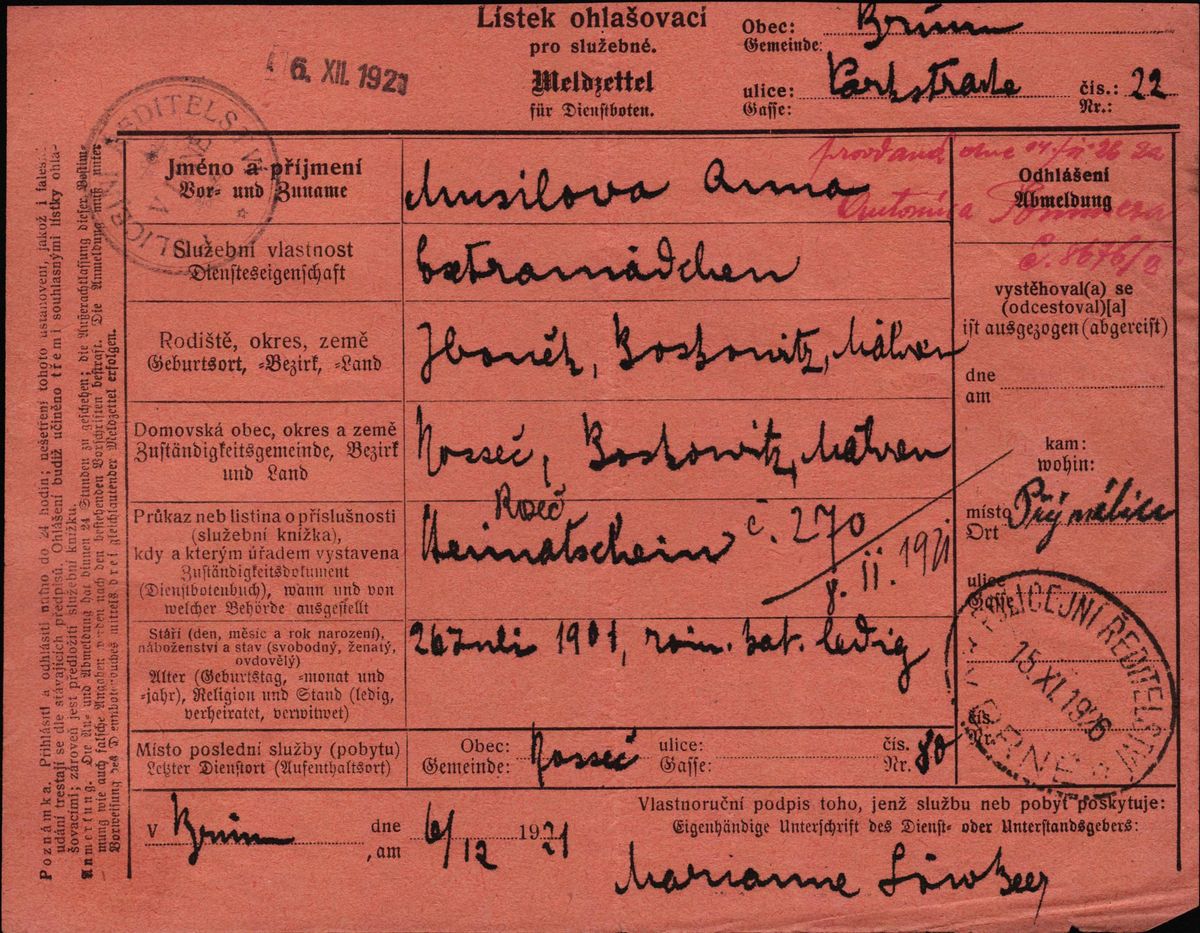 Lístek ohlašovací
pro služebné.
Meldzettel
für Dienstboten.
Obec: Brünn
Gemeinde:
ulice: Parkstraße čís.: 22
Gasse: Nr.:
6. XII. 1921
Jméno a příjmení
Vor- und Zuname
Musilova Anna
provdaná dne
Antonína
Odhlášení
Abmeldung
Služební vlastnost
Diensteseigenschaft
Extramädchen
č. 8676/
vystěhoval(a) se
(odcestoval)[a]
ist ausgezogen (abgereist)
Rodiště, okres, země
Geburtsort, -Bezirk, -Land
Boskowitz, Mähren
dne
am
Domovská obec, okres a země
Zuständigkeitsgemeinde, Bezirk
und Land
Rosseč, Boskowitz, Mähren
kam:
wohin:
místo
Ort
Průkaz neb listina o příslušnosti
(služební knížka),
kdy a kterým úřadem vystavena
Zuständigkeitsdokument
(Dienstbotenbuch), wann und von
welcher Behörde ausgestellt
Heimatschein č. 270
8. II. 1921
ulice
Gasse
Stáří (den, měsíc a rok narození),
náboženství a stav (svobodný, ženatý,
ovdovělý)
Alter (Geburtstag, -monat und
-jahr), Religion und Stand (ledig,
verheiratet, verwitwet)
26 Juli 1901, röm. kat. ledig
POLICEJNÍ ŘEDITELSTVÍ
15. XI. 1926
V BRNĚ
čís.
Nr.
Místo poslední služby (pobytu)
Letzter Dienstort (Aufenthaltsort)
Obec: Rosseč ulice: čís. 80
Gemeinde: Gasse: Nr.
v Brünn dne 6/12 1921
, am
Vlastnoruční podpis toho, jenž službu neb pobyt poskytuje:
Eigenhändige Unterschrift des Dienst- oder Unterstandsgebers:
Marianne
Poznámka. Přihlásiti a odhlásiti nutno do 24 hodin; nešetření tohoto ustanovení, jakož i falešné
udání trestají se dle stávajících předpisů. Ohlášení budiž učiněno třemi souhlasnými lístky ohla-
šovacími; zároveň jest předložiti služební knížku.
Anmerkung. Die An- und Abmeldung hat binnen 24 Stunden zu geschehen; die Außerachtlassung dieser Bestim-
mung wie auch falsche Angaben werden nach den bestehenden Vorschriften bestraft. Die Anmeldung muß unter
Vorweisung des Dienstbotenbuches mittels drei gleichlautender Meldzettel erfolgen.